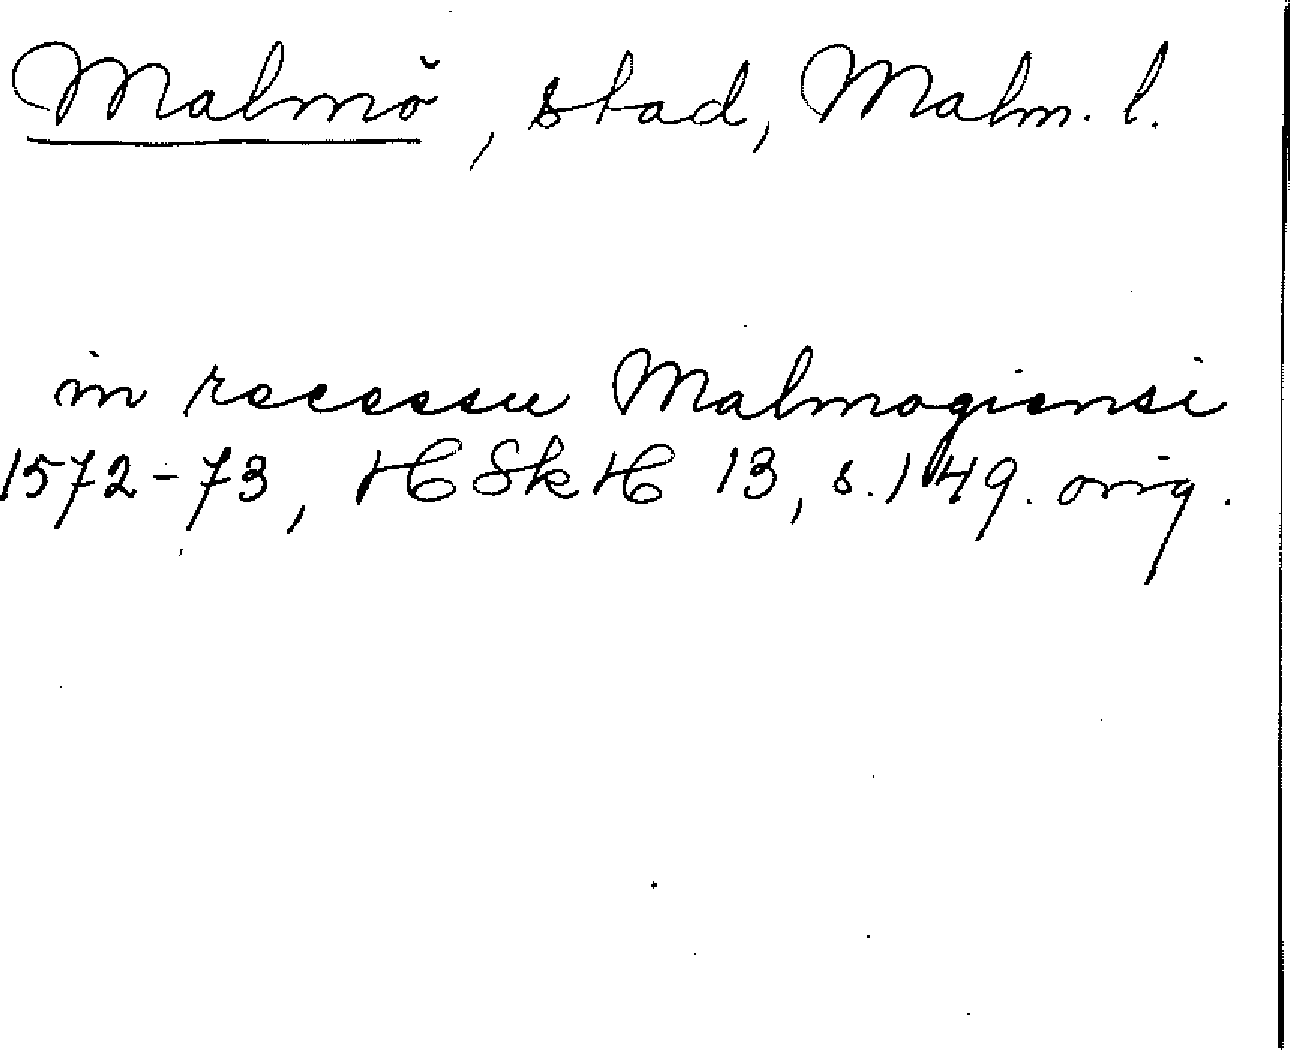 Malmö, stad, Malm. l.
in recessu Malmogiensi
1572-73, HSkH 13, s. 149. orig.